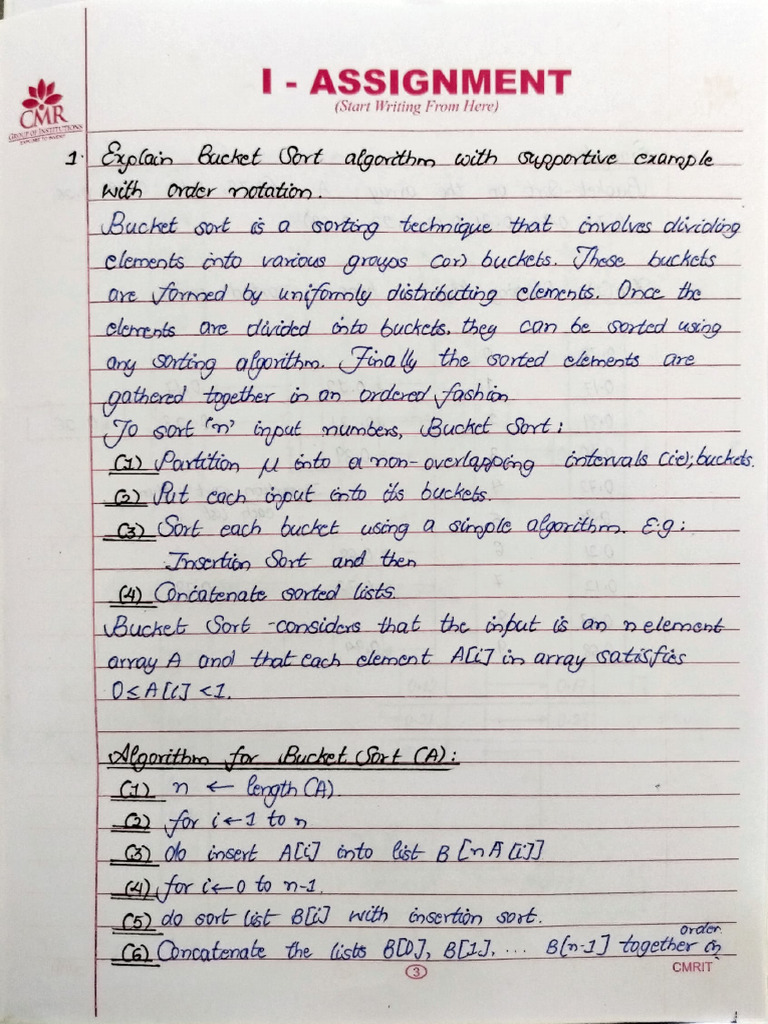 I - ASSIGNMENT
(Start Writing From Here)
CMR
GROUP OF INSTITUTIONS
EXPLORE TO INVENT
1. Explain Bucket Sort algorithm with supportive example
with order notation.
Bucket sort is a sorting technique that involves dividing
elements into various groups (or) buckets. These buckets
are formed by uniformly distributing elements. Once the
elements are divided into buckets, they can be sorted using
any sorting algorithm. Finally the sorted elements are
gathered together in an ordered fashion
To sort 'n' input numbers, Bucket Sort:
(1) Partition μ into a non-overlapping intervals (ie); buckets.
(2) Put each input into its buckets.
(3) Sort each bucket using a simple algorithm. E.g:
Insertion Sort and then
(4) Concatenate sorted lists.
Bucket Sort -considers that the input is an n element
array A and that each element A[i] in array satisfies
0≤A[i]<1.
Algorithm for Bucket Sort (A):
(1) n ← length (A).
(2) for i←1 to n
(3) do insert A[i] into list B [nA[i]]
(4) for i←0 to n-1.
(5) do sort list B[i] with insertion sort.
(6) Concatenate the lists B[0], B[1], ... B[n-1] together in order.
3
CMRIT